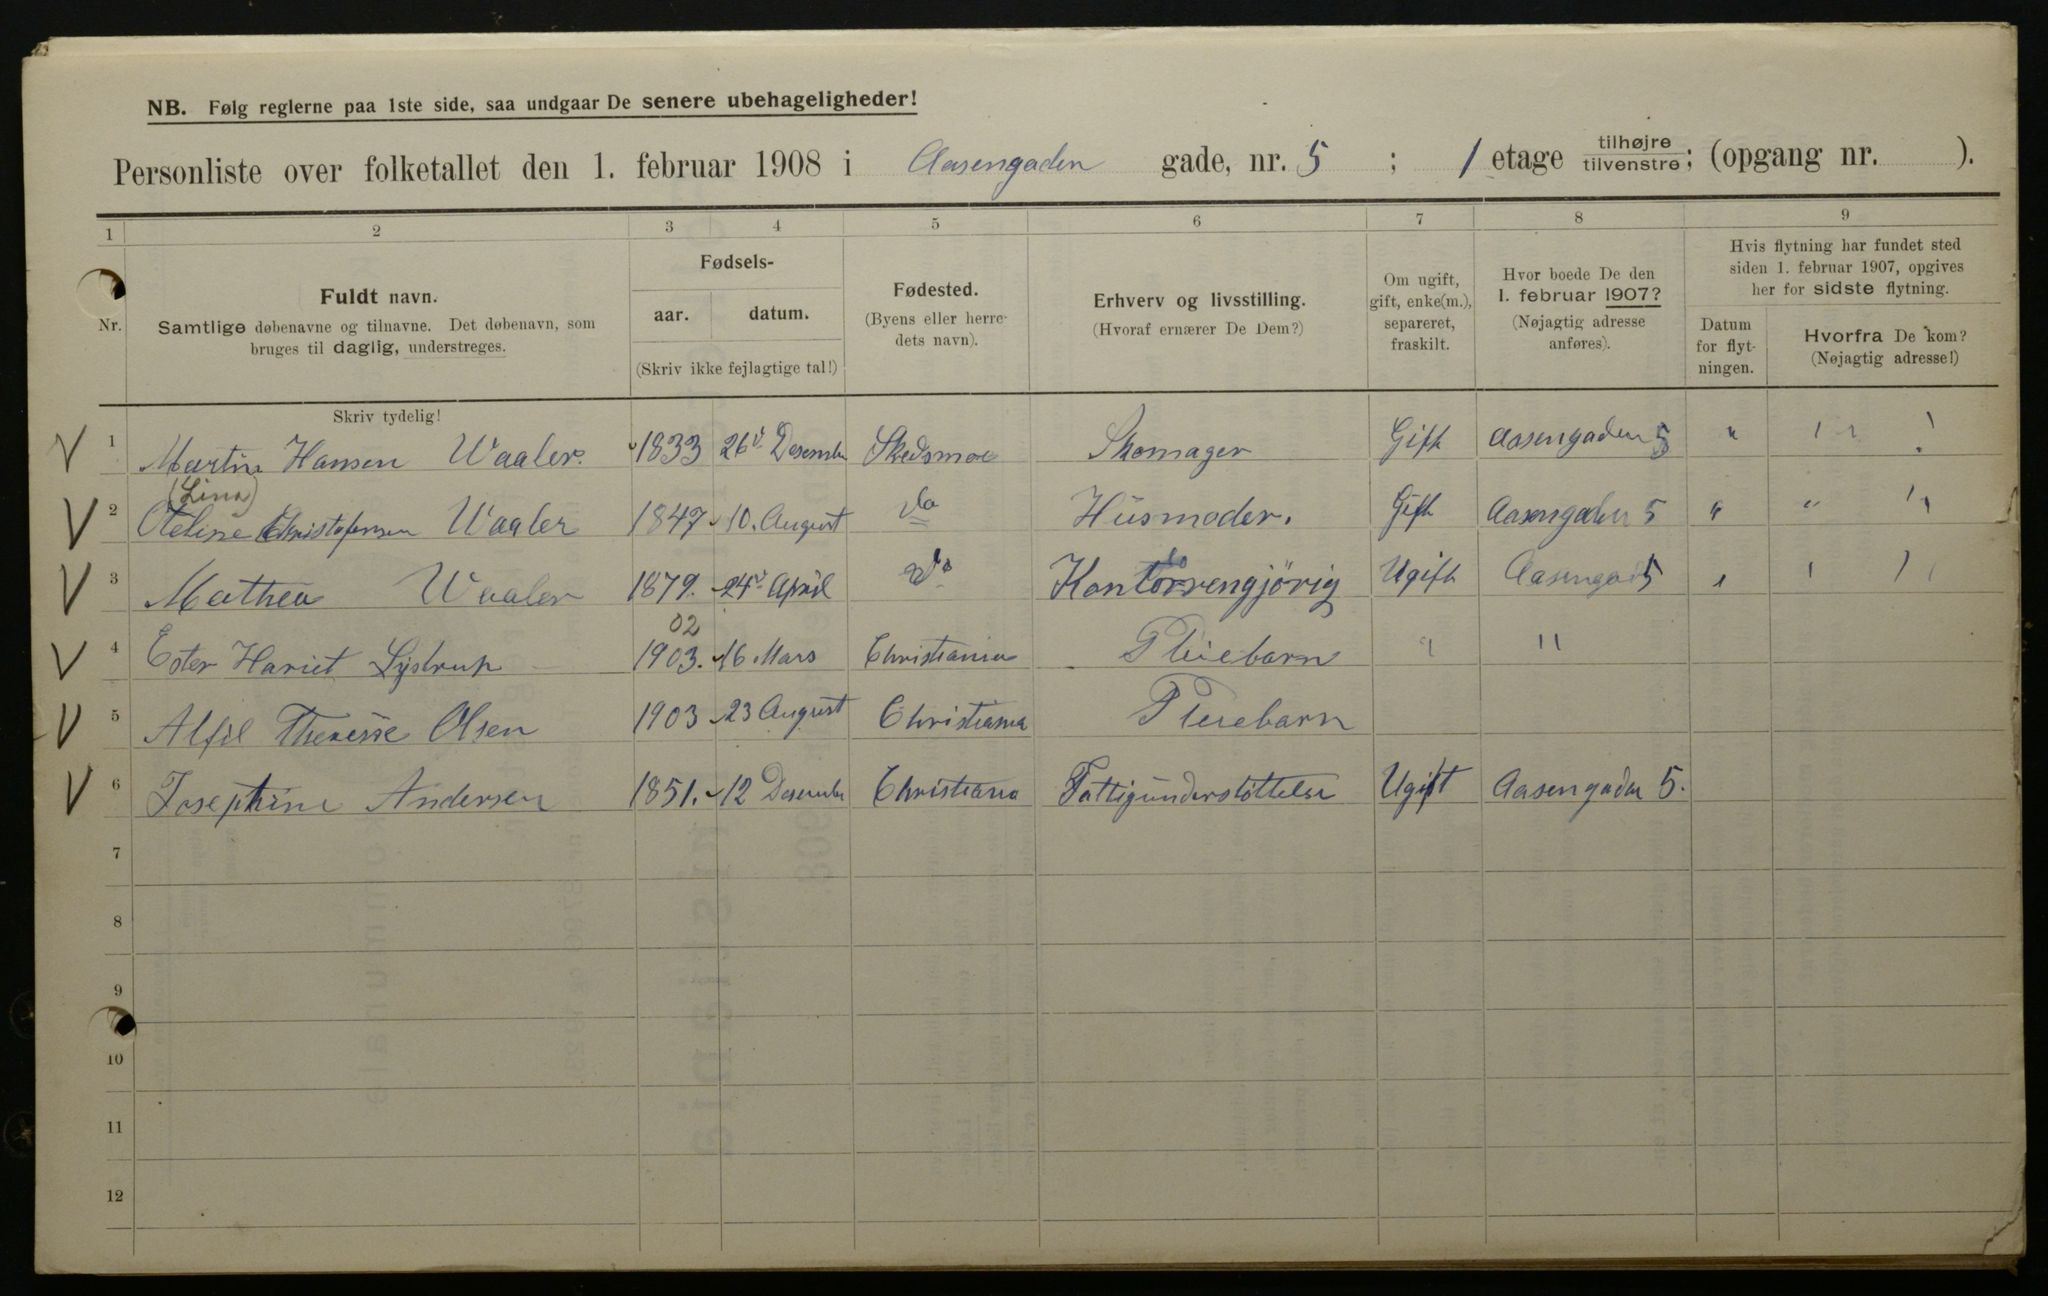 NB. Følg reglerne paa 1ste side, saa undgaar De senere ubehageligheder!
Personliste over folketallet den 1. februar 1908 i Aasengaden gade, nr. 5 ; 1 etage tilhøjre tilvenstre; (opgang nr. ).
1 2 3 4 5 6 7 8 9
Nr. Fuldt navn. Samtlige døbenavne og tilnavne. Det døbenavn, som bruges til daglig, understreges.
Fødsels- aar. datum. (Skriv ikke fejlagtige tal!)
Fødested. (Byens eller herredets navn).
Erhverv og livsstilling. (Hvoraf ernærer De Dem?)
Om ugift, gift, enke(m.), separeret, fraskilt.
Hvor boede De den 1. februar 1907? (Nøjagtig adresse anføres).
Hvis flytning har fundet sted siden 1. februar 1907, opgives her for sidste flytning.
Datum for flytningen. Hvorfra De kom? (Nøjagtig adresse!)
Skriv tydelig!
1 Martin Hansen Waaler. 1833 26 Desember Skedsmoe Skomager Gift Aasengaden 5 "
(Lina)
2 Oteline Christofersen Waaler 1847 10. August Do Husmoder. Gift Aasengaden 5 " " "
3 Mathea Waaler 1879. 24 April Do Kontorrengjörig Ugift Aasengad 5
02
4 Ester Hariet Lystrup 1903. 16 Mars Christiania Pleiebarn " "
5 Alfil Theresse Olsen 1903 23 August Christiania Pleiebarn
6 Josephine Andersen 1851. 12 Desember Christiania Fattigunderstöttelse Ugift Aasengaden 5.
7
8
9
10
11
12